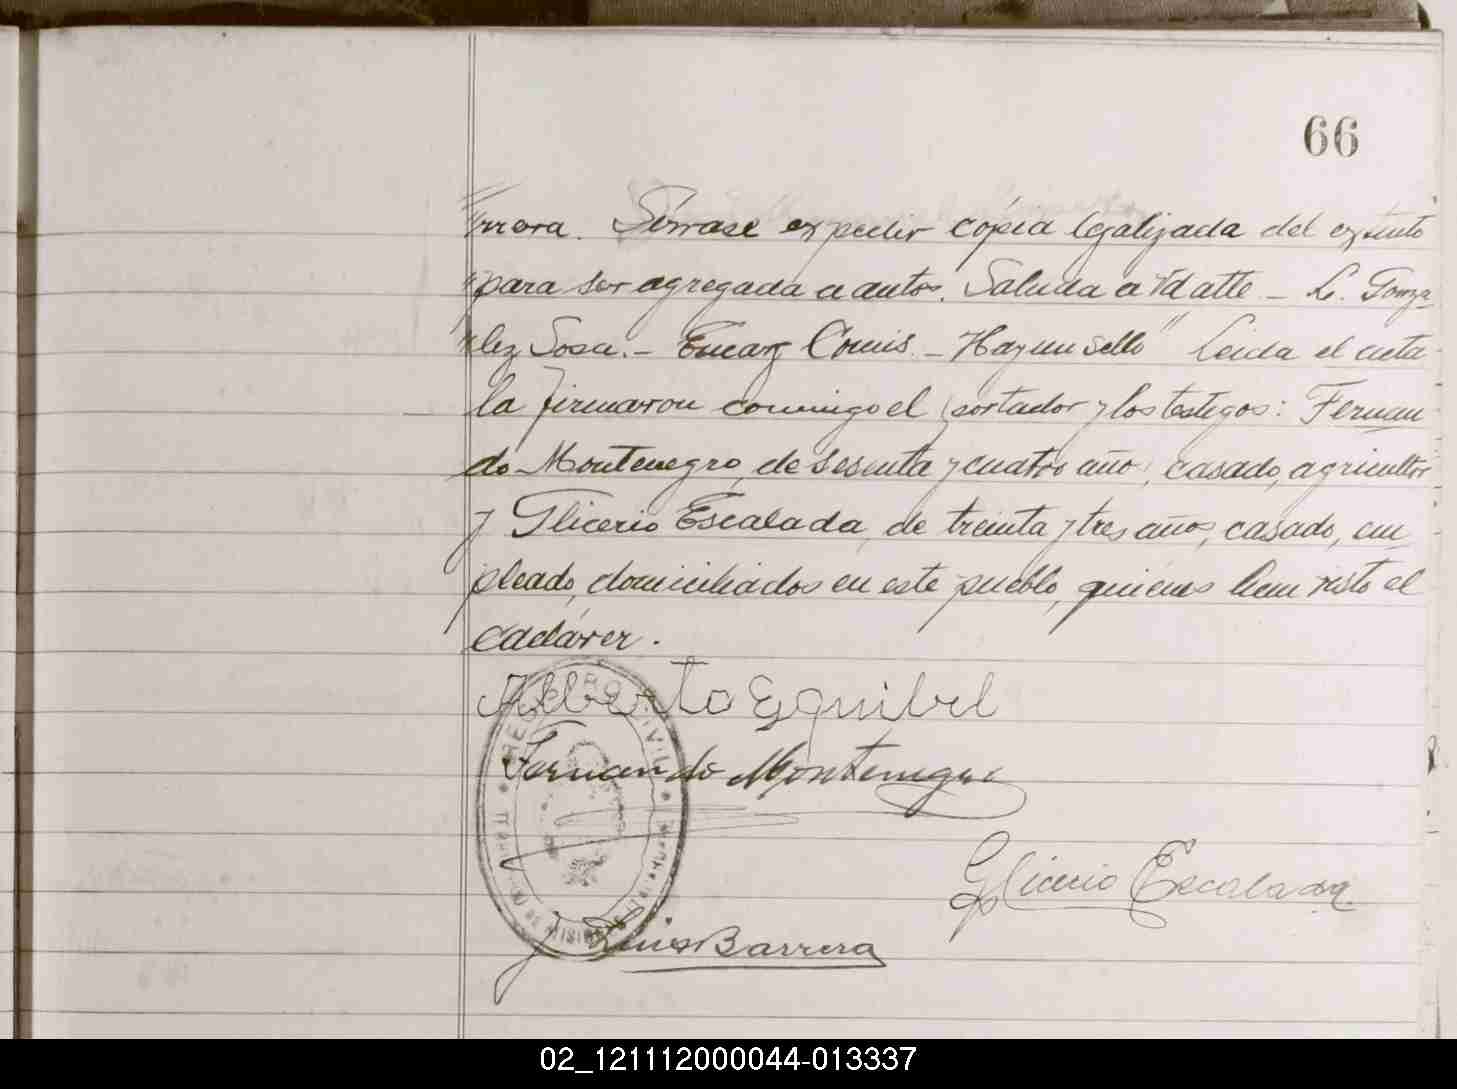 66
"rrera. Sírvase expedir cópia legalizada del extinto
"para ser agregada a autos. Saluda a Vd atte – L. Gonza
"lez Sosa. – Encarg Comis. – Hay un sello" Leida el acta
la firmaron conmigo el portador y los testigos: Fernan
do Montenegro, de sesenta y cuatro año, casado, agricultor
y Glicerio Escalada, de treinta y tres años, casado, em
pleado, domiciliados en este pueblo, quienes han visto el
cadáver.
Alberto Esquibel
Fernando Montenegro
Glicerio Escalada
Luis Barrera
REGISTRO CIVIL
02_121112000044-013337